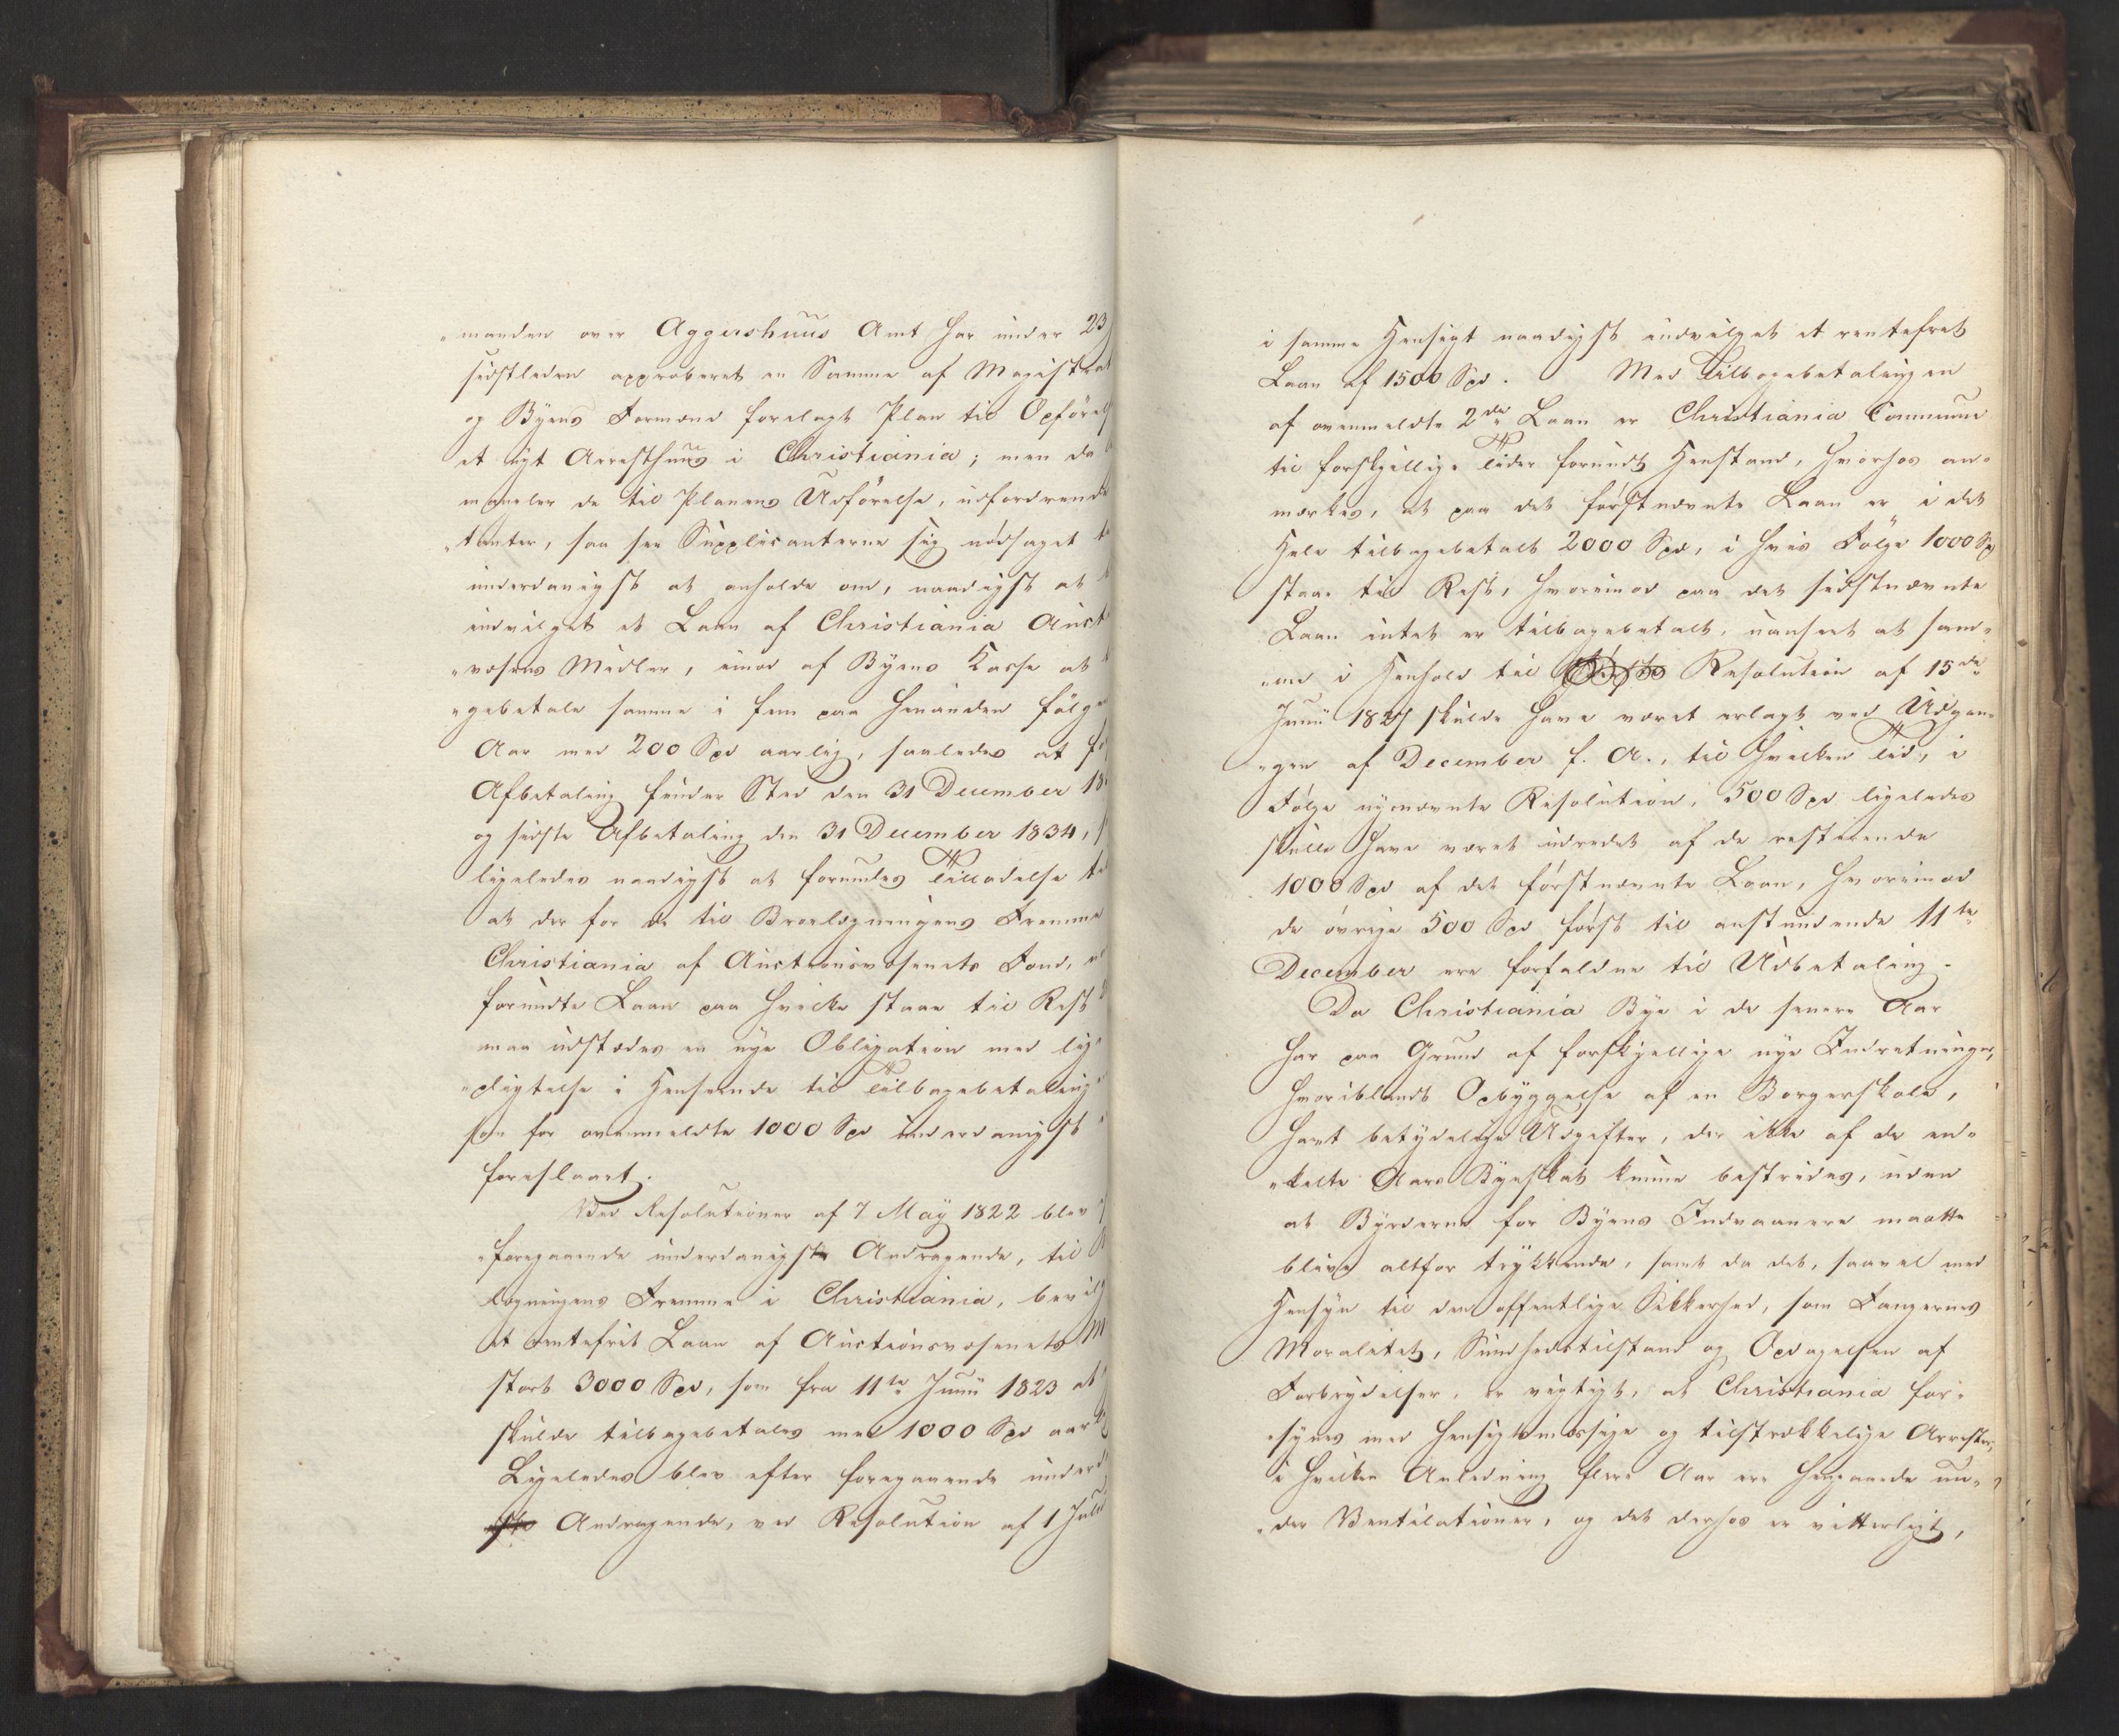 "manden over Aggershuus Amt har under 23
sidstleden approberet en Samme af Magistrat
og Byens Formænd forelagt Plan til Opförels
et nyt Arresthuus i Christiania; men da
mangler de til Planens Udförelse, udfordrende
"tanter, saa see Supplicanterne sig nödsaget t
underdanigst at anholde om, naadigst at
indvilget et Laan af Christiania Auct
"væsens Midler, imod af Byens Casse at
"gebetale samme i fem paa hinanden fölgen
Aar med 200 Spd aarlig, saaledes at fö
Afbetaling finder Sted den 31 December 18
og sidste Afbetaling den 31 December 1834,
ligeledes naadigst at forundes Tilladelse til
at der for de til Brolægningens Fremme
Christiania af Auctionsvæsenets Fond,
forundte Laan paa hvilke staae til Rest
maa udstædes en nye Obligation med lig
"pligtelse i Henseende til Tilbagebetaling
som for ovenmeldte 1000 Spd underdanigst
foreslaaet.
Ved Resolutioner af 7 May 1822 blev
"foregaaende underdanigste Andragende, til
lægningens Fremme i Christiania, bevilg
et rentefrit Laan af Auctionsvæsenets M
stort 3000 Spd, som fra 11te Junii 1823 at
skulde tilbagebetales med 1000 Spd aarlig
Ligeledes blev efter foregaaende underd
Andragende, ved Resolution af 1 Juli
i samme Hensigt naadigst indvilget et rentefrit
Laan af 1500 Spd. Med Tilbagebetalingen
af ovenmeldte 2de Laan er Christiania Commune
til forskjellige Tider forundt Henstand, hvorhos an-
mærkes, at paa det förstnævnte Laan er i det
Hele tilbagebetalt 2000 Spd, i hvis Fölge 1000 Sp
staae til Rest, hvorimod paa det sidstnævnte
Laan intet er tilbagebetalt, uanseet at sam-
"me i Henhold til Resolution af 15de
Junii 1827 skulde have været erlagt ved Udgan-
"gen af December f. A., til hvilken Tid, i
Fölge nysnævnte Resolution, 500 Spd ligeledes
skulle have været udredet af de resterende
1000 Spd af det förstnævnte Laan, hvorimod
de övrige 500 Spd först til anstundende 11te
December ere forfaldne til Udbetaling.
Da Christiania Bye i de senere Aar
har paa Grund af forskjellige nye Indretninger,
hvoriblandt Opbyggelse af en Borgerskole,
havt betydelige Udgifter, der ikke af de en-
"kelte Aars Byeskat kunne bestrides, uden
at Byrderne for Byens Indvaanere maatte
blive altfor trykkende, samt da det, saavel med
Hensyn til den offentlige Sikkerhed, som Fangernes
Moralitet, Sundhedstilstand og Opdagelsen af
Forbrydelser, er vigtigt, at Christiania for-
"synes med hensigtsmæssige og tilstrækkelige Arrester,
i hvilken Anledning flere Aar ere hengaaede un-
"der Ventilationer, og det derhos er vitterligt,